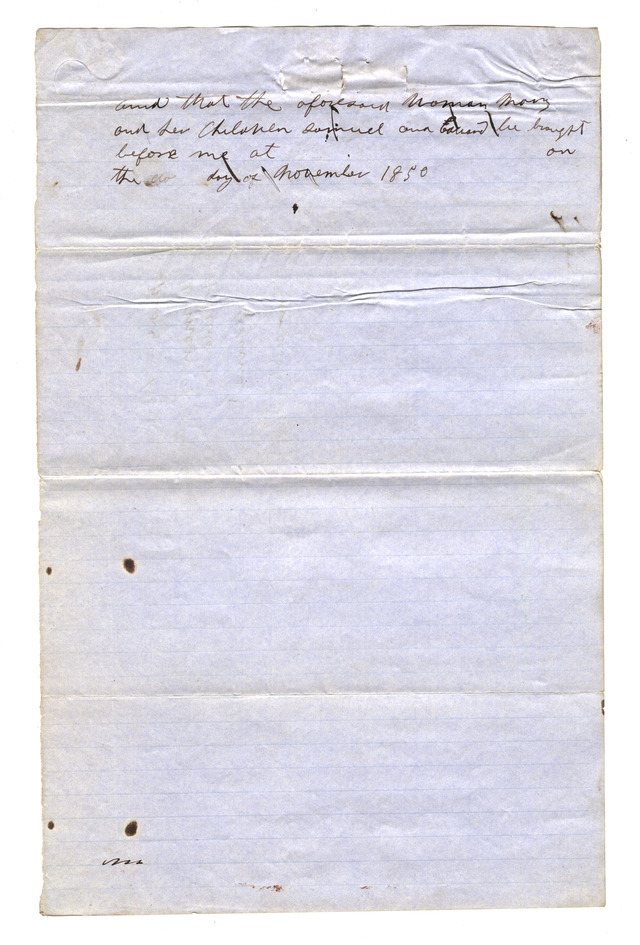 and that the aforesaid Woman Mary
and her Children Samuel and Edward be brought
before me at on
the day of November 1850